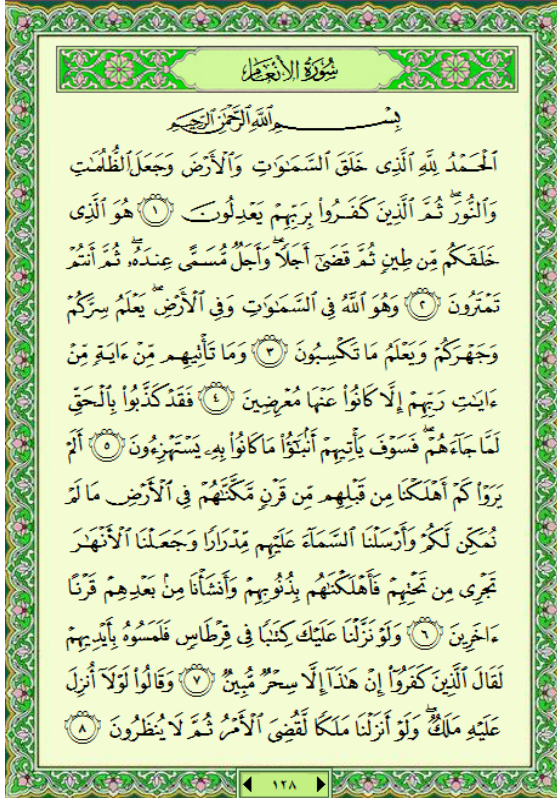 سُورَةُ الْأَنْعَامِ
بِسْمِ اللَّهِ الرَّحْمَٰنِ الرَّحِيمِ
الْحَمْدُ لِلَّهِ الَّذِى خَلَقَ السَّمَٰوَٰتِ وَالْأَرْضَ وَجَعَلَ الظُّلُمَٰتِ
وَالنُّورَ ۖ ثُمَّ الَّذِينَ كَفَرُوا۟ بِرَبِّهِمْ يَعْدِلُونَ ﴿١﴾ هُوَ الَّذِى
خَلَقَكُم مِّن طِينٍ ثُمَّ قَضَىٰٓ أَجَلًا ۖ وَأَجَلٌ مُّسَمًّى عِندَهُۥ ۖ ثُمَّ أَنتُمْ
تَمْتَرُونَ ﴿٢﴾ وَهُوَ اللَّهُ فِى السَّمَٰوَٰتِ وَفِى الْأَرْضِ ۖ يَعْلَمُ سِرَّكُمْ
وَجَهْرَكُمْ وَيَعْلَمُ مَا تَكْسِبُونَ ﴿٣﴾ وَمَا تَأْتِيهِم مِّنْ ءَايَةٍ مِّنْ
ءَايَٰتِ رَبِّهِمْ إِلَّا كَانُوا۟ عَنْهَا مُعْرِضِينَ ﴿٤﴾ فَقَدْ كَذَّبُوا۟ بِالْحَقِّ
لَمَّا جَآءَهُمْ ۖ فَسَوْفَ يَأْتِيهِمْ أَنۢبَٰٓؤُا۟ مَا كَانُوا۟ بِهِۦ يَسْتَهْزِءُونَ ﴿٥﴾ أَلَمْ
يَرَوْا۟ كَمْ أَهْلَكْنَا مِن قَبْلِهِم مِّن قَرْنٍ مَّكَّنَّٰهُمْ فِى الْأَرْضِ مَا لَمْ
نُمَكِّن لَّكُمْ وَأَرْسَلْنَا السَّمَآءَ عَلَيْهِم مِّدْرَارًا وَجَعَلْنَا الْأَنْهَٰرَ
تَجْرِى مِن تَحْتِهِمْ فَأَهْلَكْنَٰهُم بِذُنُوبِهِمْ وَأَنشَأْنَا مِنۢ بَعْدِهِمْ قَرْنًا
ءَاخَرِينَ ﴿٦﴾ وَلَوْ نَزَّلْنَا عَلَيْكَ كِتَٰبًا فِى قِرْطَاسٍ فَلَمَسُوهُ بِأَيْدِيهِمْ
لَقَالَ الَّذِينَ كَفَرُوٓا۟ إِنْ هَٰذَآ إِلَّا سِحْرٌ مُّبِينٌ ﴿٧﴾ وَقَالُوا۟ لَوْلَآ أُنزِلَ
عَلَيْهِ مَلَكٌ ۖ وَلَوْ أَنزَلْنَا مَلَكًا لَّقُضِىَ الْأَمْرُ ثُمَّ لَا يُنظَرُونَ ﴿٨﴾
١٢٨